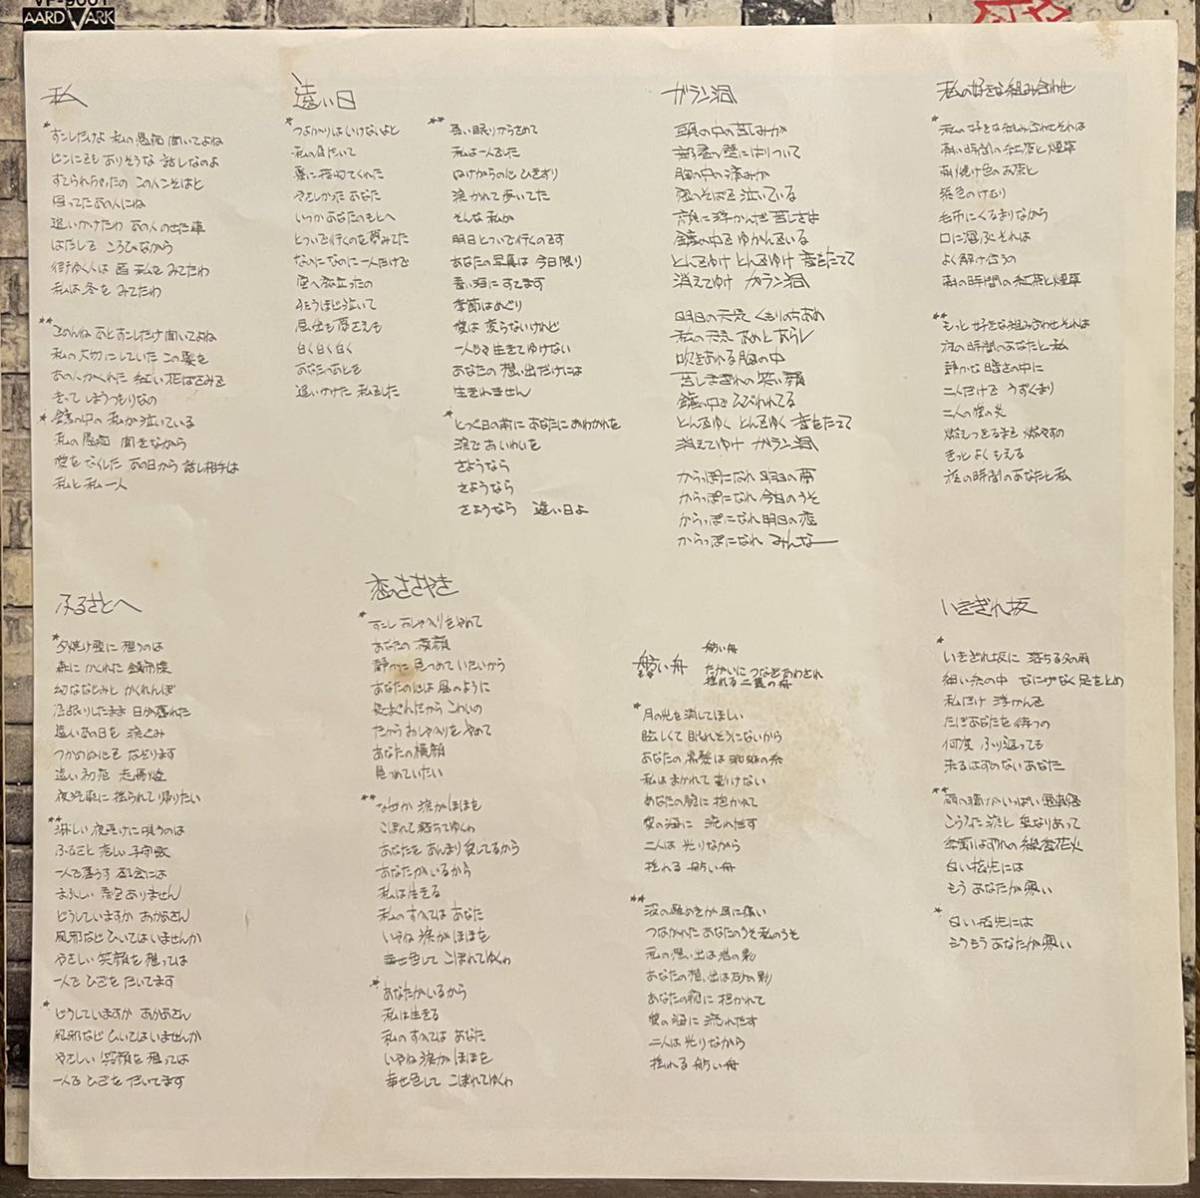 AARD VARK
私
*すこしだけよ 私の愚痴 聞いてよね
どこにでもありそうな 話しなのよ
すてられちゃったの この人こそはと
思ってたあの人にね
追いかけたわ あの人の出た車
はだしで ころびながら
街ゆく人は 皆 私を みてたわ
私は冬を みてたわ
**このんね あとすこしだけ 聞いてよね
私の大切にしていた この髪を
あの人がくれた 紅い花ばさみで
きって しまうつもりなの
*鏡の中の 私が泣いている
私の愚痴 聞きながら
愛をなくした あの日から 話し相手は
私と私 一人
遠い日
*つよがりはいけないよと
私の肩だいて
裏に接吻てくれた
やさしかった あなた
いつか あなたのもとへ
とついで行くのを 夢みてた
なのに なのに 一人だけで
空へ 旅立ったの
白く白く白く
あなたのあとを
追いかけた 私でした
**長い眠りからさめて
私は一人でした
ぬけがらの心 ひきずり
涙かれて 歩いてた
そんな 私が
明日とついで行くのです
あなたの写真は 今日限り
青い海に すてます
季節はめぐり
愛は 変らないけれど
一人じゃ 生きてゆけない
あなたの 想い出だけには
生きれません
*とつぐ日の前に あなたに おわかれを
涙で あいさつを
さようなら
さようなら
さようなら 遠い日よ
ガラン洞
頭の中の苦しみが
部屋の壁にはりついて
胸の中の痛みが
窓のそばで 泣いている
顔に浮かんだ 苦しさは
鏡の中で ゆがんでいる
とんでゆけ とんでゆけ 音をたてて
消えてゆけ ガラン洞
明日の天気 くもりのちあめ
私の天気 あめと あらし
吹きあれる 胸の中
苦しまぎれの 笑い顔
鏡の中で ひびわれてる
とんでゆく とんでゆく 音をたてて
消えてゆけ ガラン洞
からっぽになれ 昨日の夢
からっぽになれ 今日のうそ
からっぽになれ 明日の恋
からっぽになれ みんな
私の好きな組み合わせ
*私の好きな組み合わせ それは
高い時間の 紅茶と煙草
夕焼け色のお茶と
紫色のけむり
毛布にくるまりながら
口に運ぶ それは
よく解け合うの
**もっと好きな組み合わせ それは
夜の時間の あなたと私
静かな 暗さの中に
二人だけで うずくまり
二人の愛の炎
きっと よく もえる
夜の時間の あなたと私
ふるさとへ
*夕焼け雲に 想うのは
森に かくれた 鎮守様
幼ななじみと かくれんぼ
居眠りしたまま 日が落れた
遠いあの日を 涙ぐみ
遠い初恋 走馬燈
夜汽車に 揺られて 帰りたい
**淋しい夜更けに 唄うのは
ふるさと 恋しい 子守歌
一人で暮らす 都会には
まぶしい 青空ありません
どうしていますか おかあさん
風邪など ひいてはいませんか
やさしい 笑顔を 想っては
一人で ひざを だいてます
*どうしていますか おかあさん
風邪など ひいてはいませんか
やさしい 笑顔を 想っては
一人で ひざを だいてます
恋のささやき
*すこし おしゃべりをやめて
あなたの 横顔
静かに 見つめて いたいから
あなたの心は 風のように
気まぐれだから こわいの
だから おしゃべりを やめて
あなたの 横顔
見つめていたい
**なぜか 涙が ほほを
こぼれて 落ちてゆくわ
あなたを あんまり 愛してるから
あなたが いるから
私は生きる
私の すべては あなた
いやね 涙が ほほを
幸せ色して こぼれてゆくわ
*あなたが いるから
私は生きる
私の すべては あなた
いやね 涙が ほほを
幸せ色して こぼれてゆくわ
舫い舟
舫い舟
たがいに つなぎ あわされ
揺れる 二隻の舟
*月の光を 消してほしい
眩しくて 眠れそうにないから
あなたの 黒髪は 蜘蛛の糸
私は まかれて 動けない
あなたの 腕に 抱かれて
愛の海に 流れ出す
二人は 光りながら
揺れる 舫い舟
**波の騒めきが 耳に痛い
つながれた あなたのうそ 私のうそ
私の想い出は 君の影
あなたの 胸に 抱かれて
愛の海に 流れだす
二人は 光りながら
揺れる 舫い舟
いきぎれ坂
*いきぎれ坂に 落ちる夕の雨
細い糸の中 なにげなく 足をとめ
私だけ 浮かんで
ただ あなたを 待つの
何度 ふり返っても
来るはずのない あなた
**こうなた 涙と 重なりあって
季節はずれの 線香花火
白い指先には
もう あなたが 寒い
*白い指先には
もうもう あなたが 寒い